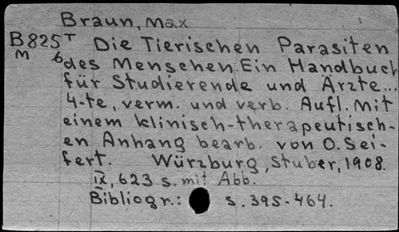 Braun, Max
B825T Die Tierischen Parasiten
M 6 des Menschen. Ein Handbuch
für Studierende und Ärzte...
4-te, verm. und verb. Aufl. Mit
einem klinisch-therapeutisch-
en Anhang bearb. von O. Sei-
fert. Würzburg, Stuber, 1908.
IX, 623 s. mit Abb.
Bibliogr.: s. 395-464.